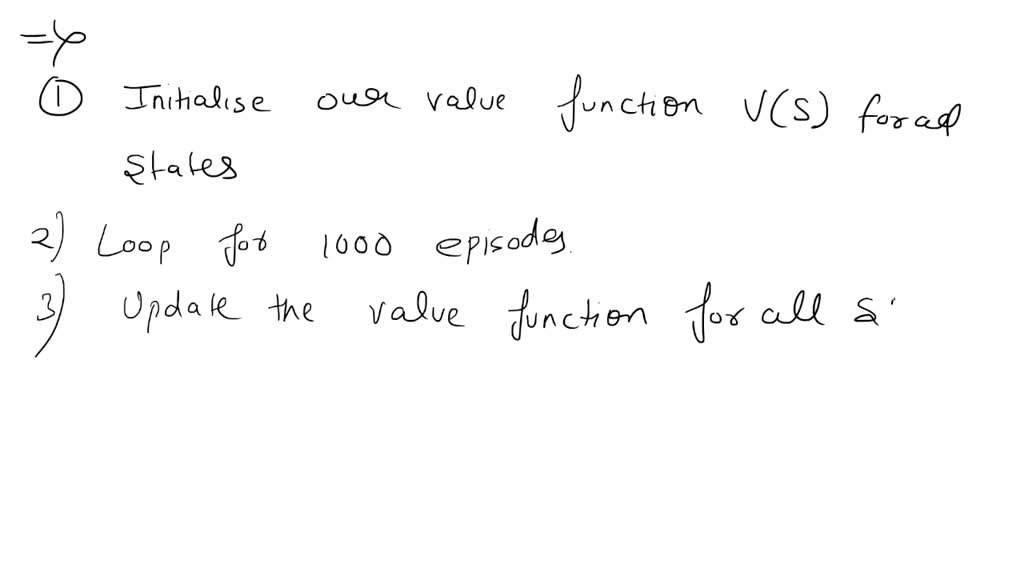 ① Initialise our value function V(S) for all
States
2) Loop for 1000 episodes.
3) Update the value function for all s'